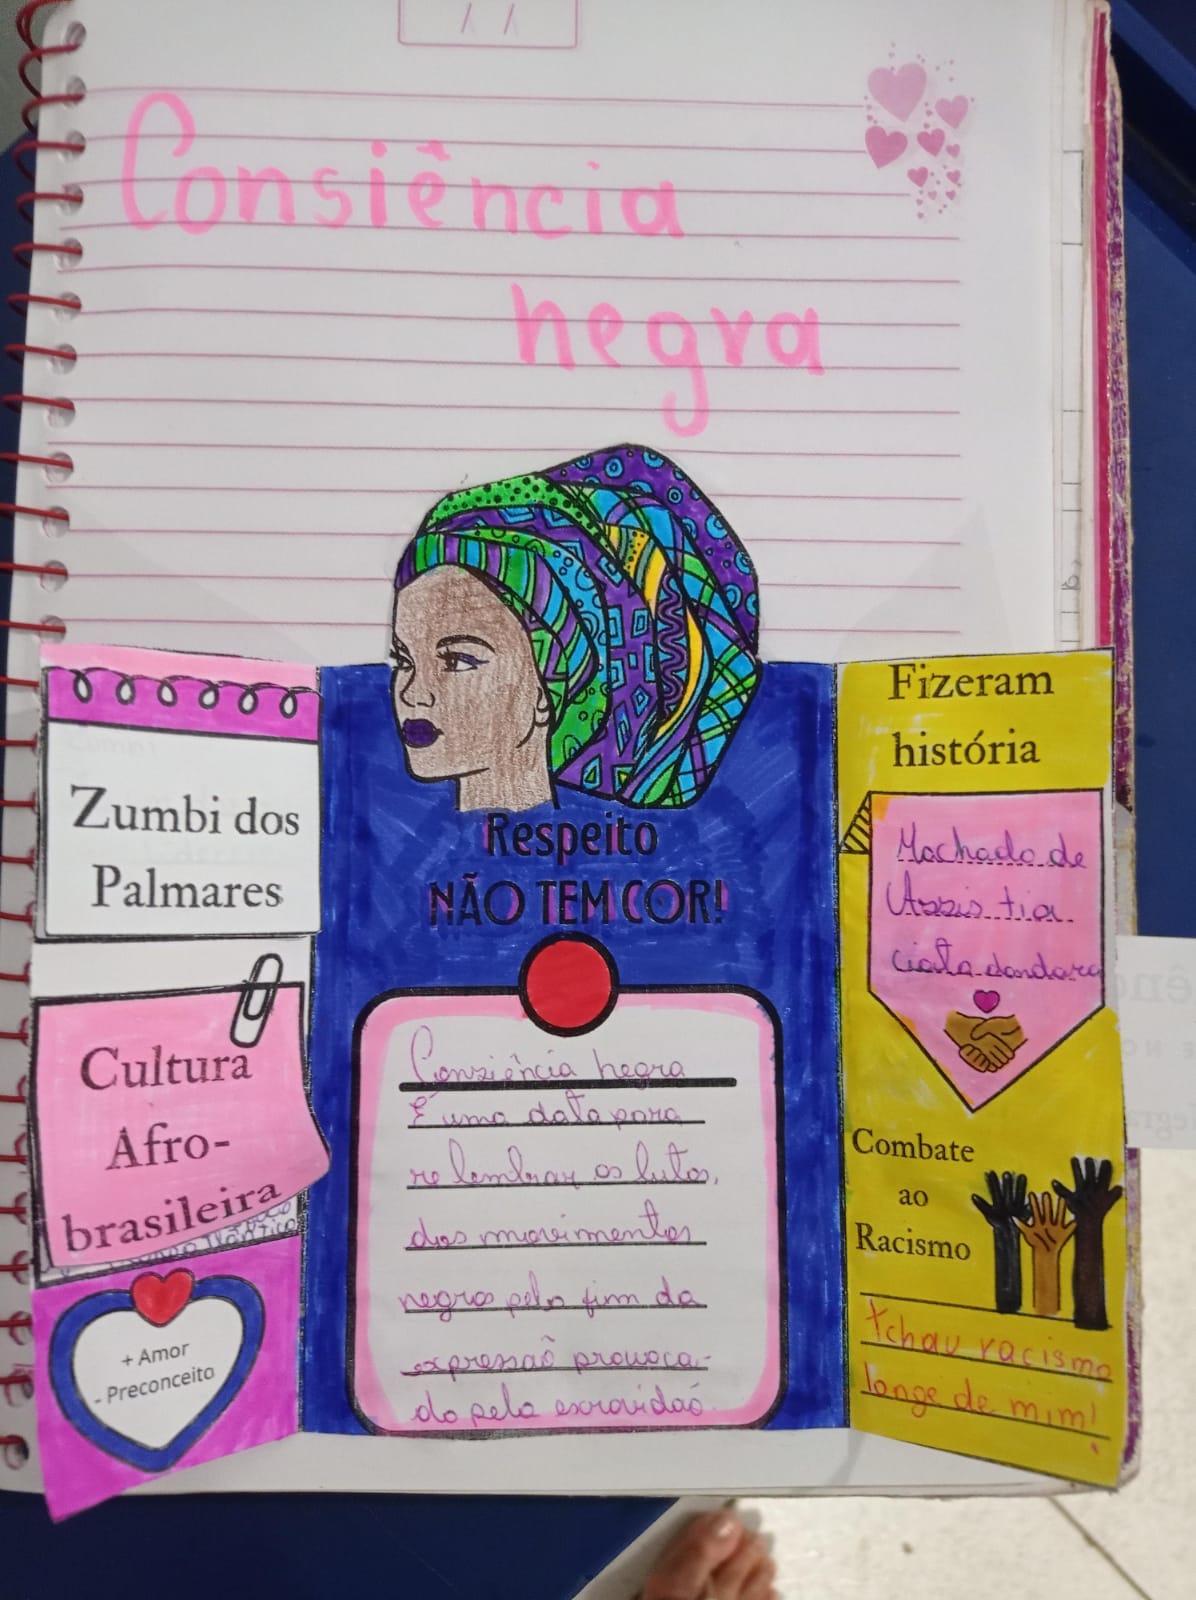 Consiência
negra
Zumbi dos
Palmares
Cultura
Afro-
brasileira
+ Amor
- Preconceito
Respeito
NÃO TEM COR!
Consiência negra
É uma data para
relembrar as lutas,
dos movimentos
negros pelo fim da
expressaõ provoca-
do pela escravidaõ.
Fizeram
história
Machado de
Assis tia
ciata dandara
Combate
ao
Racismo
tchau racismo
longe de mim!